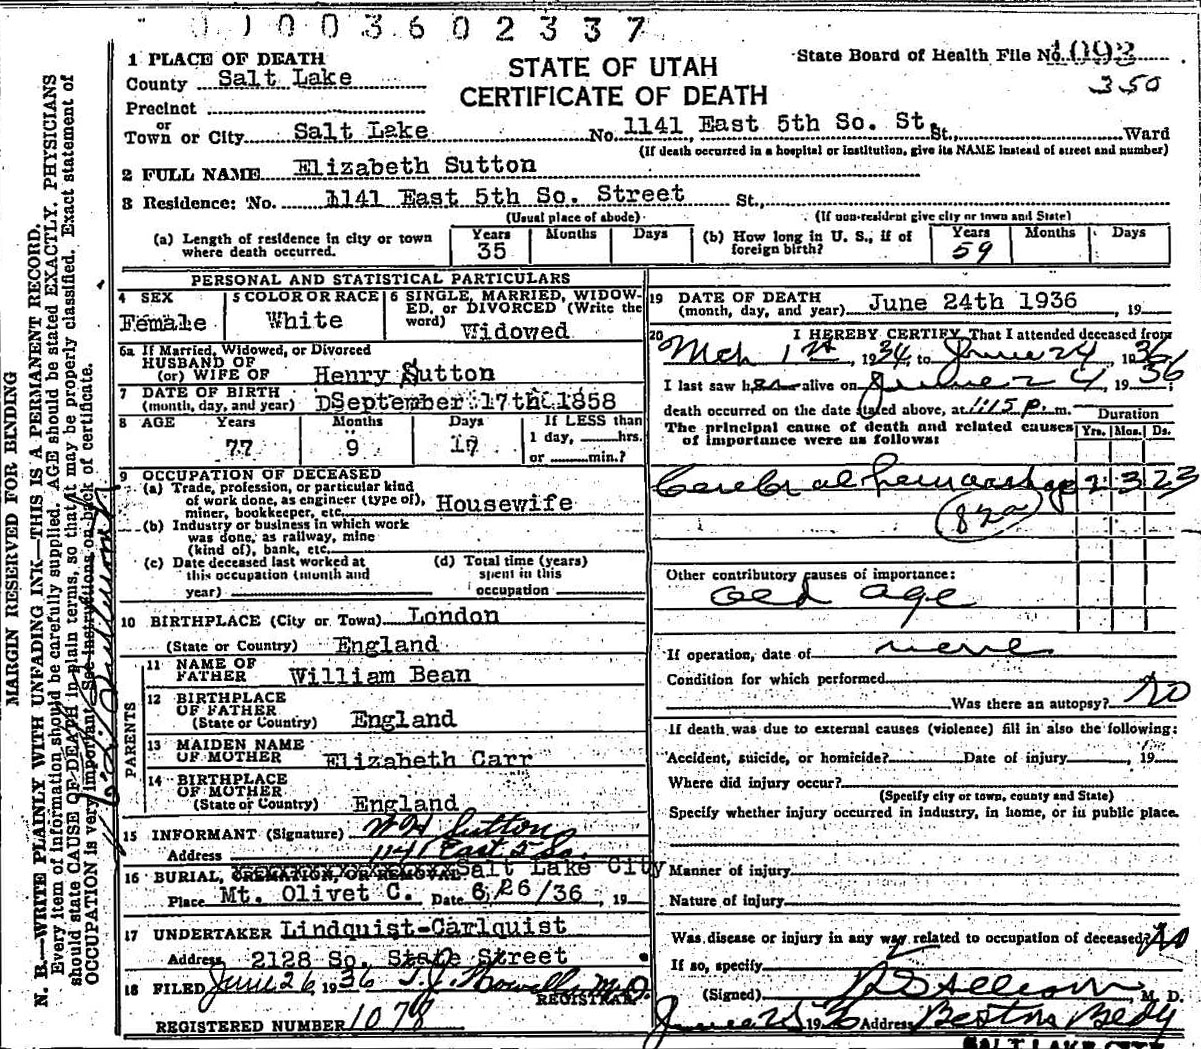 01003602337
1 PLACE OF DEATH
County Salt Lake
STATE OF UTAH
CERTIFICATE OF DEATH
State Board of Health File No. 1093
350
Precinct
or
Town or City Salt Lake No. 1141 East 5th So. St. St., Ward
(If death occurred in a hospital or institution, give its NAME instead of street and number)
2 FULL NAME Elizabeth Sutton
3 Residence: No. 1141 East 5th So. Street St.,
(Usual place of abode) (If non-resident give city or town and State)
(a) Length of residence in city or town where death occurred. Years 35 Months Days
(b) How long in U. S., if of foreign birth? Years 59 Months Days
PERSONAL AND STATISTICAL PARTICULARS
4 SEX Female
5 COLOR OR RACE White
6 SINGLE, MARRIED, WIDOWED, or DIVORCED (Write the word) Widowed
6a If Married, Widowed, or Divorced
HUSBAND OF
(or) WIFE OF Henry Sutton
7 DATE OF BIRTH
(month, day, and year) September 17th 1858
8 AGE Years 77 Months 9 Days 17
If LESS than
1 day, hrs.
or min.?
9 OCCUPATION OF DECEASED
(a) Trade, profession, or particular kind
of work done, as engineer (type of),
miner, bookkeeper, etc. Housewife
(b) Industry or business in which work
was done, as railway, mine
(kind of), bank, etc.
(c) Date deceased last worked at
this occupation (month and
year)
(d) Total time (years)
spent in this
occupation
10 BIRTHPLACE (City or Town) London
(State or Country) England
PARENTS
11 NAME OF
FATHER William Bean
12 BIRTHPLACE
OF FATHER
(State or Country) England
13 MAIDEN NAME
OF MOTHER Elizabeth Carr
14 BIRTHPLACE
OF MOTHER
(State or Country) England
15 INFORMANT (Signature) W H Sutton
Address 1141 East 5 So.
16 BURIAL, CREMATION, OR REMOVAL Salt Lake City
Place Mt. Olivet C. Date 6/26/36, 19
17 UNDERTAKER Lindquist-Carlquist
Address 2128 So. State Street
18 FILED June 26, 1936 T. J. Howells M.D.
REGISTRAR
REGISTERED NUMBER 1078
19 DATE OF DEATH
(month, day, and year) June 24th 1936, 19
20 I HEREBY CERTIFY, That I attended deceased from
Mch 1st, 1934, to June 24, 1936
I last saw her alive on June 24, 1936
death occurred on the date stated above, at 1:15 p. m.
The principal cause of death and related causes
of importance were as follows:
Duration
Yrs. Mos. Ds.
Cerebral hemorrhage 2 3 23
(82a)
Other contributory causes of importance:
Old age
If operation, date of none
Condition for which performed
Was there an autopsy? No
If death was due to external causes (violence) fill in also the following:
Accident, suicide, or homicide? Date of injury , 19
Where did injury occur?
(Specify city or town, county and State)
Specify whether injury occurred in industry, in home, or in public place.
Manner of injury
Nature of injury
Was disease or injury in any way related to occupation of deceased? No
If so, specify
(Signed) M. D.
June 25 1936 Address Boston Bldg
SALT LAKE CITY
MARGIN RESERVED FOR BINDING
N. B.—WRITE PLAINLY WITH UNFADING INK—THIS IS A PERMANENT RECORD.
Every item of information should be carefully supplied. AGE should be stated EXACTLY. PHYSICIANS
should state CAUSE OF DEATH in plain terms, so that it may be properly classified. Exact statement of
OCCUPATION is very important. See instructions on back of certificate.